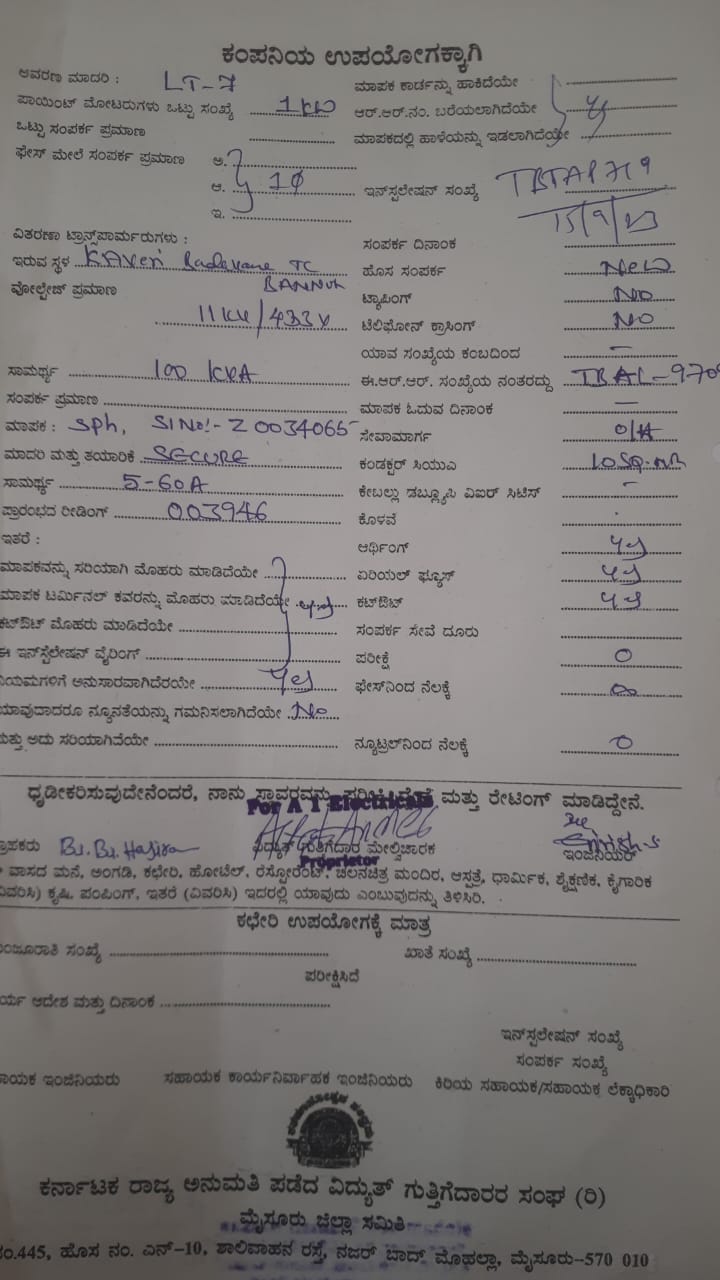 ಕಂಪನಿಯ ಉಪಯೋಗಕ್ಕಾಗಿ
ಆವರಣ ಮಾದರಿ : LT-7 ಮಾಪಕ ಕಾರ್ಡನ್ನು ಹಾಕಿದೆಯೇ
ಪಾಯಿಂಟ್ ಮೋಟರುಗಳು ಒಟ್ಟು ಸಂಖ್ಯೆ 1KW ಆರ್.ಆರ್.ನಂ. ಬರೆಯಲಾಗಿದೆಯೇ
ಒಟ್ಟು ಸಂಪರ್ಕ ಪ್ರಮಾಣ ಮಾಪಕದಲ್ಲಿ ಹಾಳೆಯನ್ನು ಇಡಲಾಗಿದೆಯೇ
ಫೇಸ್ ಮೇಲೆ ಸಂಪರ್ಕ ಪ್ರಮಾಣ ಅ.
ಆ. 1ϕ ಇನ್‌ಸ್ಟಲೇಷನ್ ಸಂಖ್ಯೆ
ಇ. 15/9/23
ವಿತರಣಾ ಟ್ರಾನ್ಸ್‌ಪಾರ್ಮರುಗಳು : ಸಂಪರ್ಕ ದಿನಾಂಕ
ಇರುವ ಸ್ಥಳ KAVeri Badavane TC ಹೊಸ ಸಂಪರ್ಕ New
BANNUR
ವೋಲ್ಟೇಜ್ ಪ್ರಮಾಣ ಟ್ಯಾಪಿಂಗ್ NO
11KV/433V ಟೆಲಿಫೋನ್ ಕ್ರಾಸಿಂಗ್ NO
ಯಾವ ಸಂಖ್ಯೆಯ ಕಂಬದಿಂದ –
ಸಾಮರ್ಥ್ಯ 100 KVA ಈ.ಆರ್.ಆರ್. ಸಂಖ್ಯೆಯ ನಂತರದ್ದು
ಸಂಪರ್ಕ ಪ್ರಮಾಣ ಮಾಪಕ ಓದುವ ದಿನಾಂಕ –
ಮಾಪಕ : Sph, Sl No:- Z0034065 ಸೇವಾಮಾರ್ಗ O/H
ಮಾದರಿ ಮತ್ತು ತಯಾರಿಕೆ SECURE ಕಂಡಕ್ಟರ್ ಸಿಯುಎ 10SQ.MM
ಸಾಮರ್ಥ್ಯ 5-60A ಕೇಬಲ್ಲು ಡಬ್ಲ್ಯೂಪಿ ವಿಐರ್ ಸಿಟಿಸ್ –
ಪ್ರಾರಂಭದ ರೀಡಿಂಗ್ 003946 ಕೊಳವೆ
ಇತರೆ : ಆರ್ಥಿಂಗ್ yes
ಮಾಪಕವನ್ನು ಸರಿಯಾಗಿ ಮೊಹರು ಮಾಡಿದೆಯೇ ಏರಿಯಲ್ ಫ್ಯೂಸ್ yes
ಮಾಪಕ ಟರ್ಮಿನಲ್ ಕವರನ್ನು ಮೊಹರು ಮಾಡಿದೆಯೇ yes ಕಟ್‌ಔಟ್ yes
ಕಟ್‌ಔಟ್ ಮೊಹರು ಮಾಡಿದೆಯೇ ಸಂಪರ್ಕ ಸೇವೆ ದೂರು
ಈ ಇನ್‌ಸ್ಟಲೇಷನ್ ವೈರಿಂಗ್ ಪರೀಕ್ಷೆ 0
ನಿಯಮಗಳಿಗೆ ಅನುಸಾರವಾಗಿದೆರಯೇ Yes ಫೇಸ್‌ನಿಂದ ನೆಲಕ್ಕೆ
ಯಾವುದಾದರೂ ನ್ಯೂನತೆಯನ್ನು ಗಮನಿಸಲಾಗಿದೆಯೇ No
ಮತ್ತು ಅದು ಸರಿಯಾಗಿವೆಯೇ ನ್ಯೂಟ್ರಲ್‌ನಿಂದ ನೆಲಕ್ಕೆ 0
ಧೃಡೀಕರಿಸುವುದೇನೆಂದರೆ, ನಾನು ಸ್ಥಾವರವನ್ನು ಪರೀಕ್ಷಿಸಿದ್ದೇನೆ ಮತ್ತು ರೇಟಿಂಗ್ ಮಾಡಿದ್ದೇನೆ.
For A I Electricals
ಗ್ರಾಹಕರು Bi.Bi.Hajira ವಿದ್ಯುತ್ ಗುತ್ತಿಗೆದಾರ ಮೇಲ್ವಿಚಾರಕ ಇಂಜಿನಿಯರ್
Proprietor
ವಾಸದ ಮನೆ, ಅಂಗಡಿ, ಕಛೇರಿ, ಹೋಟೆಲ್, ರೆಸ್ಟೋರೆಂಟ್, ಚಲನಚಿತ್ರ ಮಂದಿರ, ಆಸ್ಪತ್ರೆ, ಧಾರ್ಮಿಕ, ಶೈಕ್ಷಣಿಕ, ಕೈಗಾರಿಕ
(ವಿವರಿಸಿ) ಕೃಷಿ, ಪಂಪಿಂಗ್, ಇತರೆ (ವಿವರಿಸಿ) ಇದರಲ್ಲಿ ಯಾವುದು ಎಂಬುವುದನ್ನು ತಿಳಿಸಿರಿ.
ಕಛೇರಿ ಉಪಯೋಗಕ್ಕೆ ಮಾತ್ರ
ಮಂಜೂರಾತಿ ಸಂಖ್ಯೆ ಖಾತೆ ಸಂಖ್ಯೆ
ಪರೀಕ್ಷಿಸಿದೆ
ಕಾರ್ಯ ಆದೇಶ ಮತ್ತು ದಿನಾಂಕ
ಇನ್‌ಸ್ಟಲೇಷನ್ ಸಂಖ್ಯೆ
ಸಂಪರ್ಕ ಸಂಖ್ಯೆ
ಸಹಾಯಕ ಇಂಜಿನಿಯರು ಸಹಾಯಕ ಕಾರ್ಯನಿರ್ವಾಹಕ ಇಂಜಿನಿಯರು ಕಿರಿಯ ಸಹಾಯಕ/ಸಹಾಯಕ ಲೆಕ್ಕಾಧಿಕಾರಿ
ಕರ್ನಾಟಕ ರಾಜ್ಯ ಅನುಮತಿ ಪಡೆದ ವಿದ್ಯುತ್ ಗುತ್ತಿಗೆದಾರರ ಸಂಘ (ರಿ)
ಮೈಸೂರು ಜಿಲ್ಲಾ ಸಮಿತಿ
ನಂ.445, ಹೊಸ ನಂ. ಎನ್–10, ಶಾಲಿವಾಹನ ರಸ್ತೆ, ನಜರ್ ಬಾದ್ ಮೊಹಲ್ಲಾ, ಮೈಸೂರು–570 010